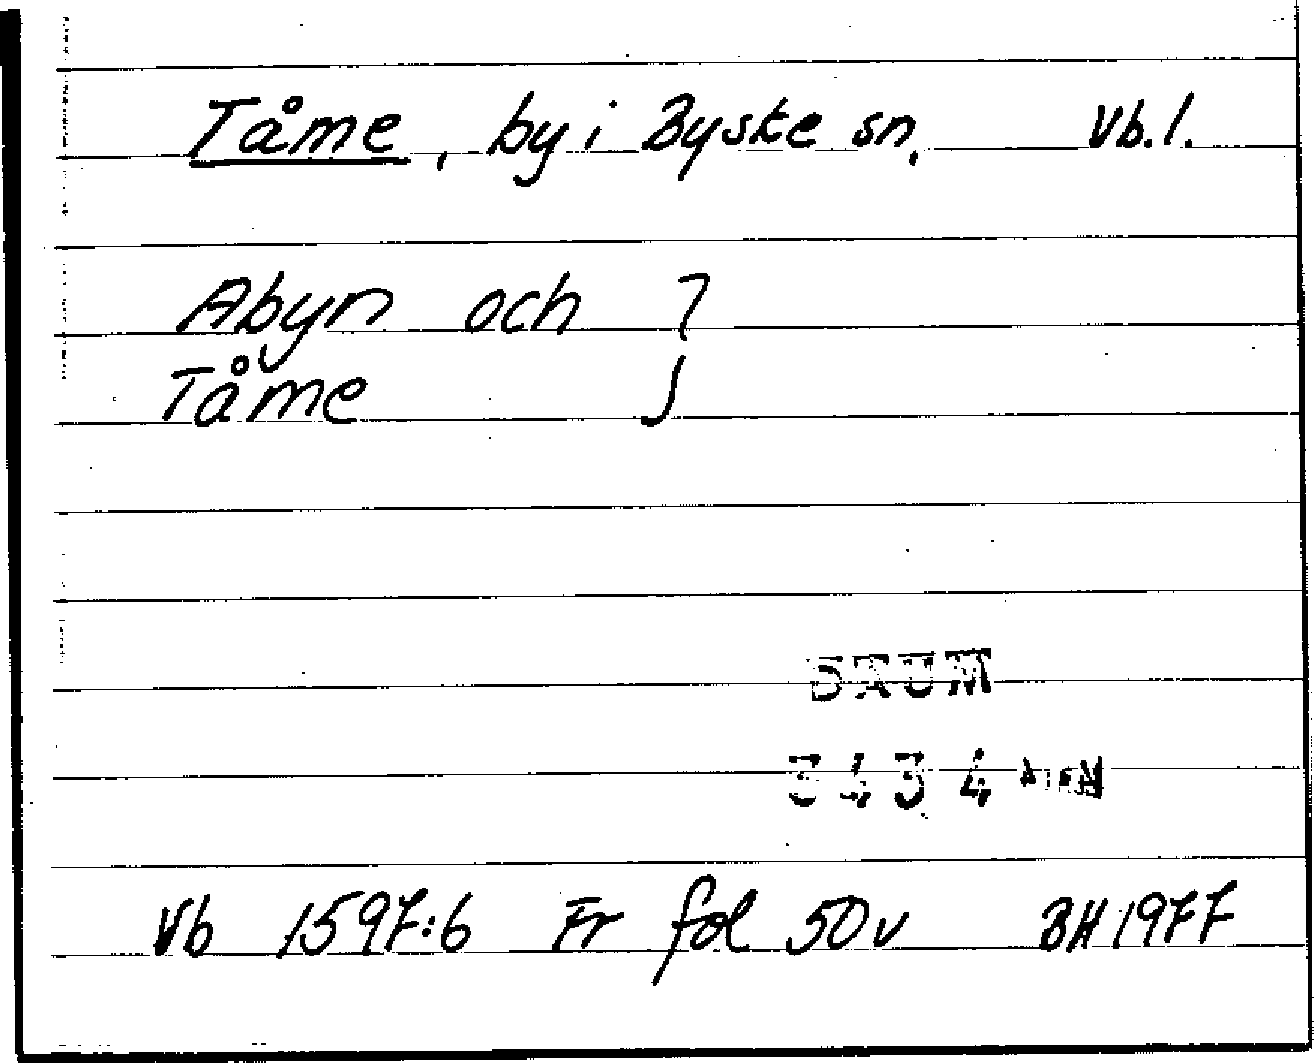 Tåme, by i Byske sn. Vb. l.
Abyn och }
Tåme
DAUM
3434
Vb 1597:6 Fr fol 50v BH 1977